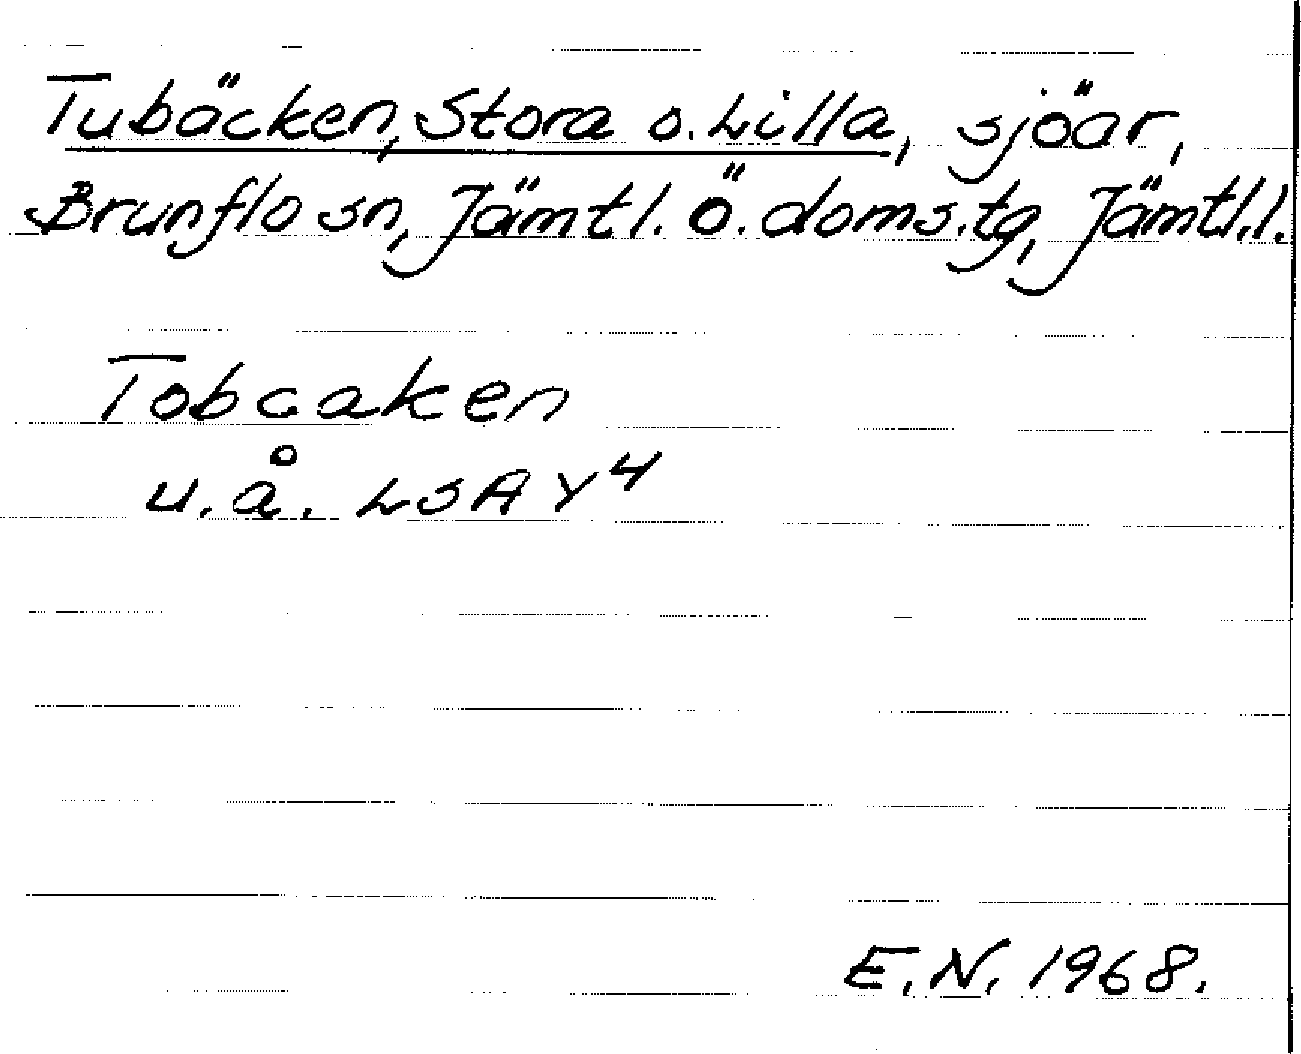 Tubäcken, Stora o. Lilla, sjöar,
Brunflo sn, Jämtl. Ö. doms.tg, Jämtl.l.
Tobcaken
u.å. LSA Y4
E.N. 1968.